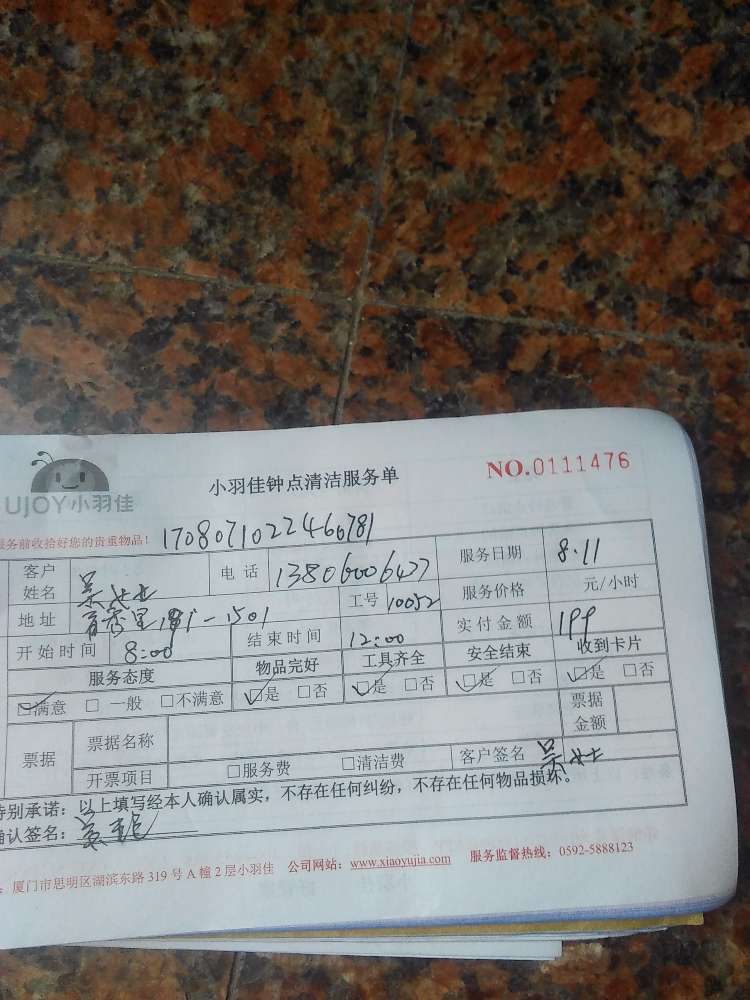 UJOY小羽佳
小羽佳钟点清洁服务单
NO.0111476
服务前收拾好您的贵重物品！ 1708071022466781
客户姓名 吴女士 电话 13806006477 服务日期 8.11
地址 1501 工号 10052 服务价格 元/小时
开始时间 8:00 结束时间 12:00 实付金额 199
服务态度 物品完好 工具齐全 安全结束 收到卡片
☑满意 □一般 □不满意 ☑是 □否 ☑是 □否 ☑是 □否 ☑是 □否
票据 票据名称 票据金额
开票项目 □服务费 □清洁费 客户签名 吴女士
特别承诺：以上填写经本人确认属实，不存在任何纠纷，不存在任何物品损坏。
确认签名：
：厦门市思明区湖滨东路319号A幢2层小羽佳 公司网站：www.xiaoyujia.com 服务监督热线：0592-5888123